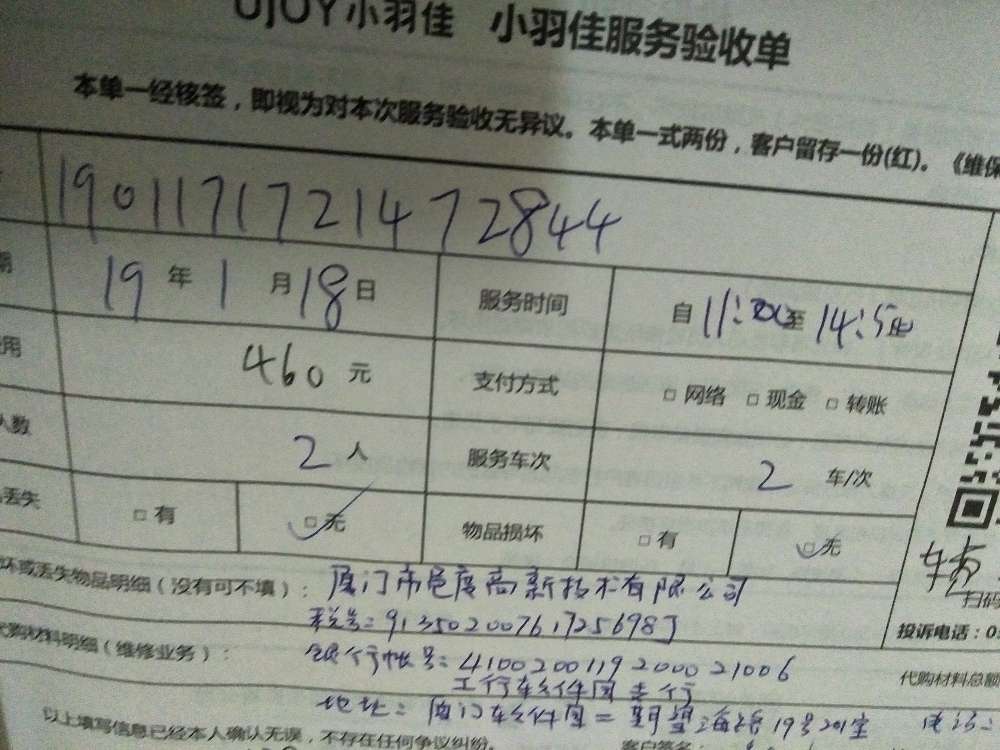 UJOY小羽佳 小羽佳服务验收单
本单一经核签，即视为对本次服务验收无异议。本单一式两份，客户留存一份(红)。《维保
1901171721472844
期 19 年 1 月 18 日 服务时间 自 11: 至 14:5
用 460 元 支付方式 □ 网络 □ 现金 □ 转账
人数 2 人 服务车次 2 车/次
丢失 □ 有 □ 无 物品损坏 □ 有 □ 无
扫码
坏或丢失物品明细（没有可不填）： 厦门市 度高新技术有限公司
税号：913502007617256987J
投诉电话：05
代购材料明细（维修业务）： 银行帐号：4100200119200021006
代购材料总额
工行软件园支行
地址：厦门软件园二期望海路19号201室 电话：
以上填写信息已经本人确认无误，不存在任何争议纠纷。 客户签名：